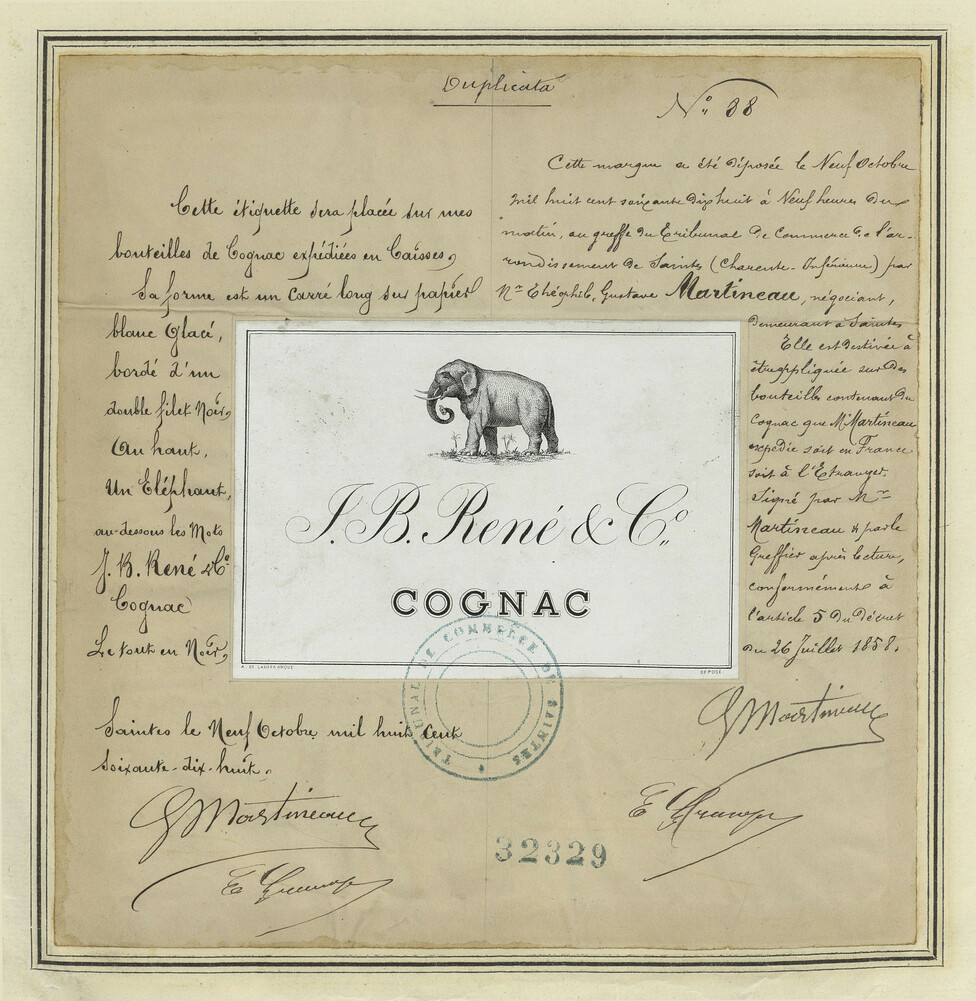 Duplicata
N° 38
Cette étiquette sera placée sur mes
bouteilles de Cognac expédiées en Caisses,
Sa forme est un carré long sur papier
blanc Glacé,
bordé d'un
double filet Noir,
Au haut,
Un Eléphant,
au-dessous les Mots
J. B. René & Cº
Cognac
Le tout en Noir,
Saintes le Neuf Octobre mil huit Cent
soixante-dix-huit.
G Martineau
Cette marque a été déposée le Neuf Octobre
mil huit cent soixante dix huit à Neuf heures du
matin, au greffe du Tribunal de Commerce de l'ar-
rondissement de Saintes (Charente-Inférieure) par
Mr Théophile, Gustave Martineau, négociant,
demeurant à Saintes
Elle est destinée à
être appliquée sur des
bouteilles contenant du
Cognac que Mr Martineau
expédie soit en France
soit à l'Etranger.
Signé par Mr
Martineau & par le
Greffier après lecture,
conformément à
l'article 5 du Décret
du 26 Juillet 1858.
G Martineau
J. B. René & Cº
COGNAC
A. DE LASHERANQUE
DÉPOSÉ.
TRIBUNAL DE COMMERCE DE SAINTES
32329